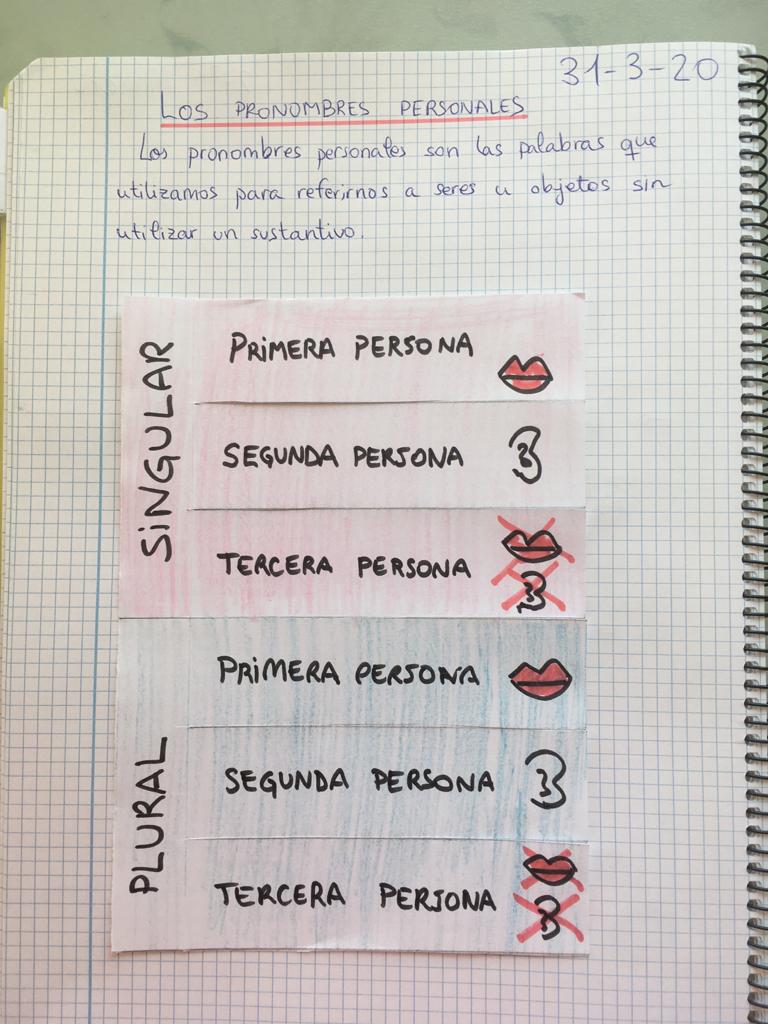 31-3-20
LOS PRONOMBRES PERSONALES
Los pronombres personales son las palabras que
utilizamos para referirnos a seres u objetos sin
utilizar un sustantivo.
SiNGULAR
PRiMERA PERSONA
SEGUNDA PERSONA
TERCERA PERSONA
PLURAL
PRiMERA PERSONA
SEGUNDA PERSONA
TERCERA PERSONA